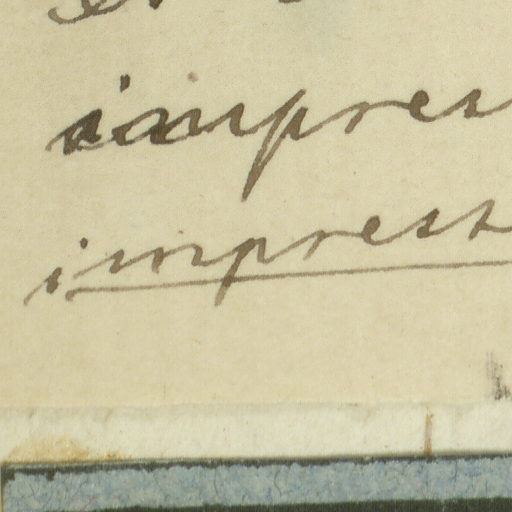 impres
imprest